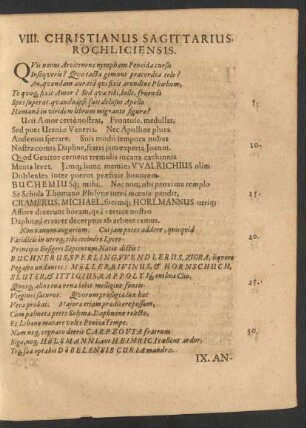 VIII. CHRISTIANUS SAGITTARIUS,
ROCHLICIENSIS.
QVis novus Arcitenens nympham Peneida cursu
Insequeris? Quo tacta gemunt præcordia telo?
An, quondam aurato qui fixit arundine Phœbum,
Te quoq; fixit Amor? Sed quæ tibi, belle, fruendi
Spes superat, quando ipse fuit delusus Apollo
Humano in viridem librum migrante figura?
Urit Amor certè nostras, Frontose, medullas,
Sed puer Uraniæ Veneris. Nec Apolline plura
Audemus sperare. Suis modò tempora nubat
Nostra comis Daphne, frater jam experta Joanni.
Qvod Genitor cernens tremulis incana cachinnis
Menta levet. Jamq; hunc memini VVALRICHIUS olim
Doblenses inter pueros præfixit honorem
BUCHEMIUSq; mihi. Nec non, ubi proxima templo
Se Schola Thomano Phileyræ intra mœnia pandit,
CRAMERUS, MICHAEL, fortemq; HORLMANNUS utriq;
Affore dixerunt horam, quâ vertice nostro
Daphnæi crearet decerptus ab arbore ramus.
Non vanum augurium. Cui jam potes addere, quicquid
Veridici in utroq; tibi cecinêre Lyceo
Principis Ensigeri Sapientum Natio dictis:
BUCHNERUS, SPERLING, VVENDLERUS, ZIGRA, bivertice
Pegaseo undantes: MÜLLER, RIVINUS, & HORNSCHUCH,
SLUTER, & ITTIGIUS, RAPPOLT
Quosq; alios tua vena bibit mellisque fontis
Virginei faturos. Quorum præsagia jam hæc
Vera probas. Majora etiam prædicere possum,
Cum palmeta petes Solymæ, Daphnéne relicto,
Et Libano mutare voles Peneia Tempe.
Nam neq; cognato deerit CARPZOVIA fratrum
Biga, neq; HÜLSMANNI aut HEINRICI cælitus ardor,
Teq; sua optabit DÖBELENSIS CURIA mandra.
5.
10.
15.
20.
25.
30.
IX. AN-